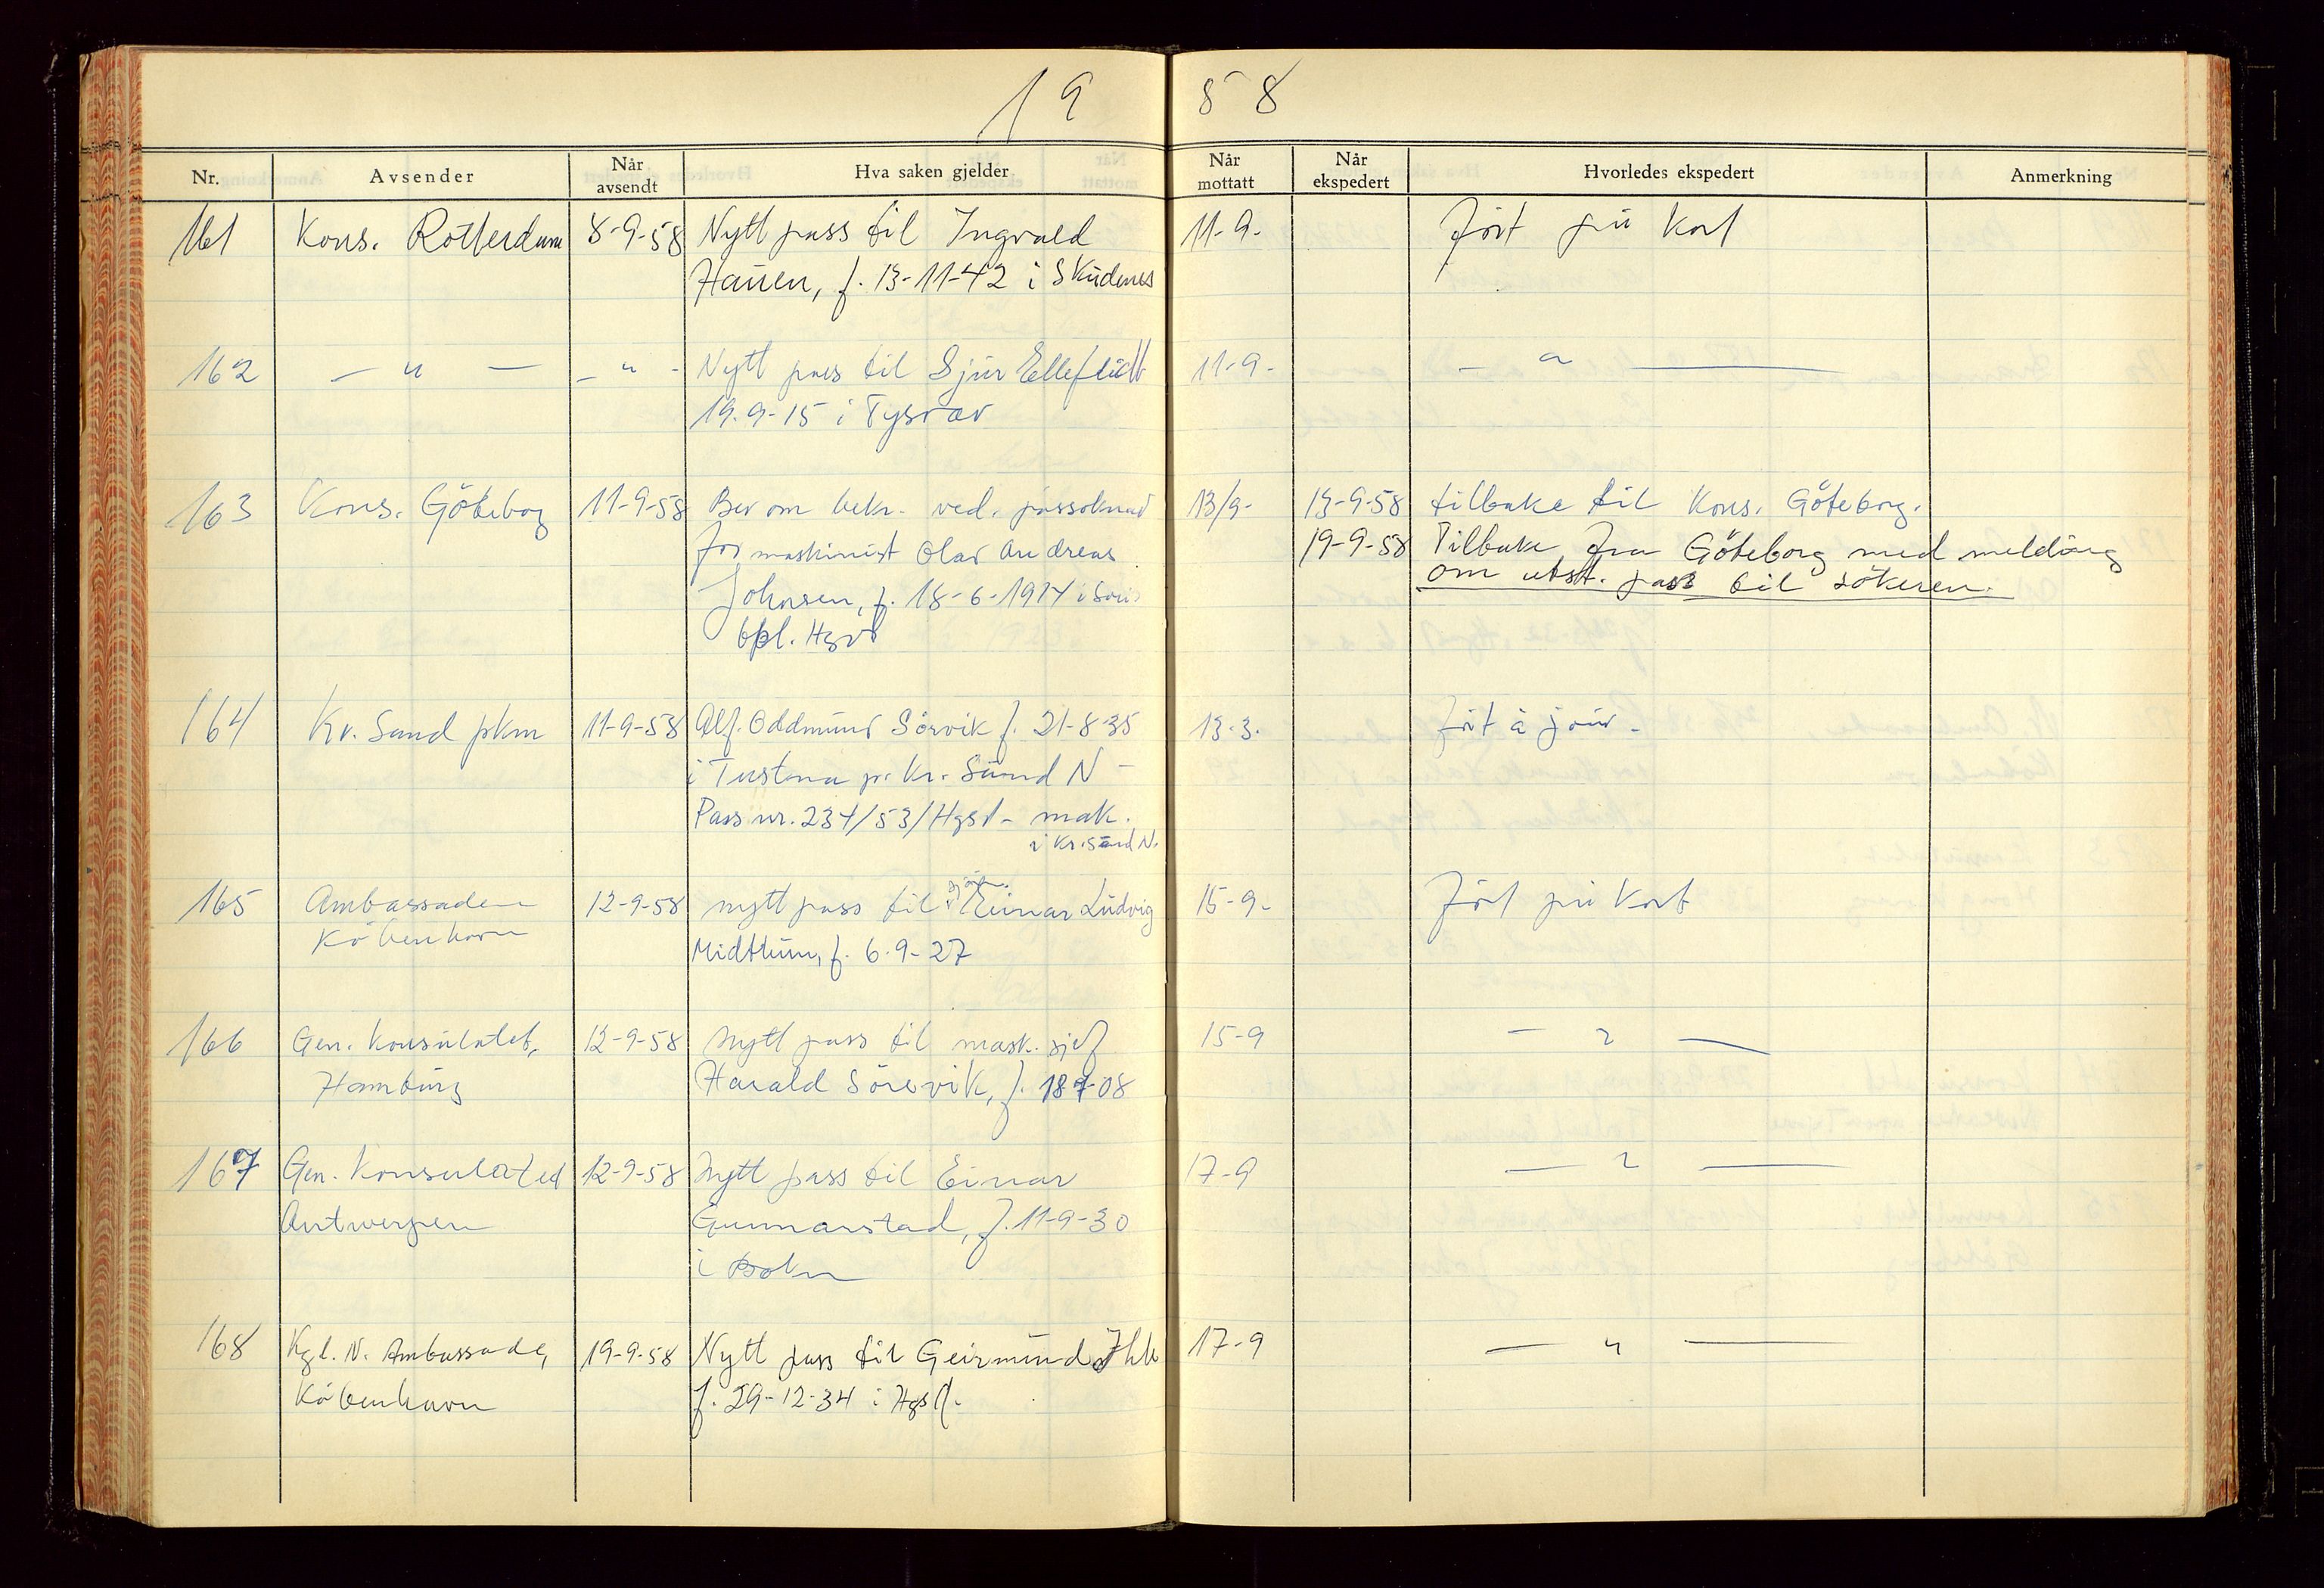 19 58
Nr. Avsender Når avsendt Hva saken gjelder Når mottatt Når ekspedert Hvorledes ekspedert Anmerkning
161 Kons. Rotterdam 8-9-58 Nytt pass til Ingvald 11-9- Ført på Kort
Hauen, f. 13-11-42 i Skudenes
162 — " — - " - Nytt pass til Sjur 11-9- — " —
19.9-15 i Tysvær
163 Kons. Göteborg 11-9-58 Ber om bekr. ved. passøknad 13/9- 13-9-58 tilbake til Kons. Göteborg.
for maskinist Olav Andreas 19-9-58 Tilbake fra Göteborg med melding
om utst. pass til søkeren.
Johnsen, f. 18-6-1914 i
bpl. Hgsd
164 Kr. Sand pkm 11-9-58 Alf Oddmund Sørvik f. 21-8-35 13-3. Ført à jour-
i Tustna pr. Kr. Sund N -
Pass nr. 234/53/Hgsd- mak.
i Kr.sund N.
165 Ambassaden 12-9-58 nytt pass til Einar Ludvig 15-9- Ført på Kort
København Midttun, f. 6.9-27
166 Gen. Konsulatet, 12-9-58 nytt pass til mask. sjef 15-9 — " —
Hamburg Harald Sørevik, f. 18 08
167 Gen. Konsulatet 12-9-58 Nytt pass til Einar 17-9 — " —
Antwerpen Gunnarstad, f. 11-9-30
i Bokn
168 Kgl. N. Ambassade, 19-9-58 Nytt pass til Geirmund 17-9 — " —
København f. 29-12-34 i Hgsd.